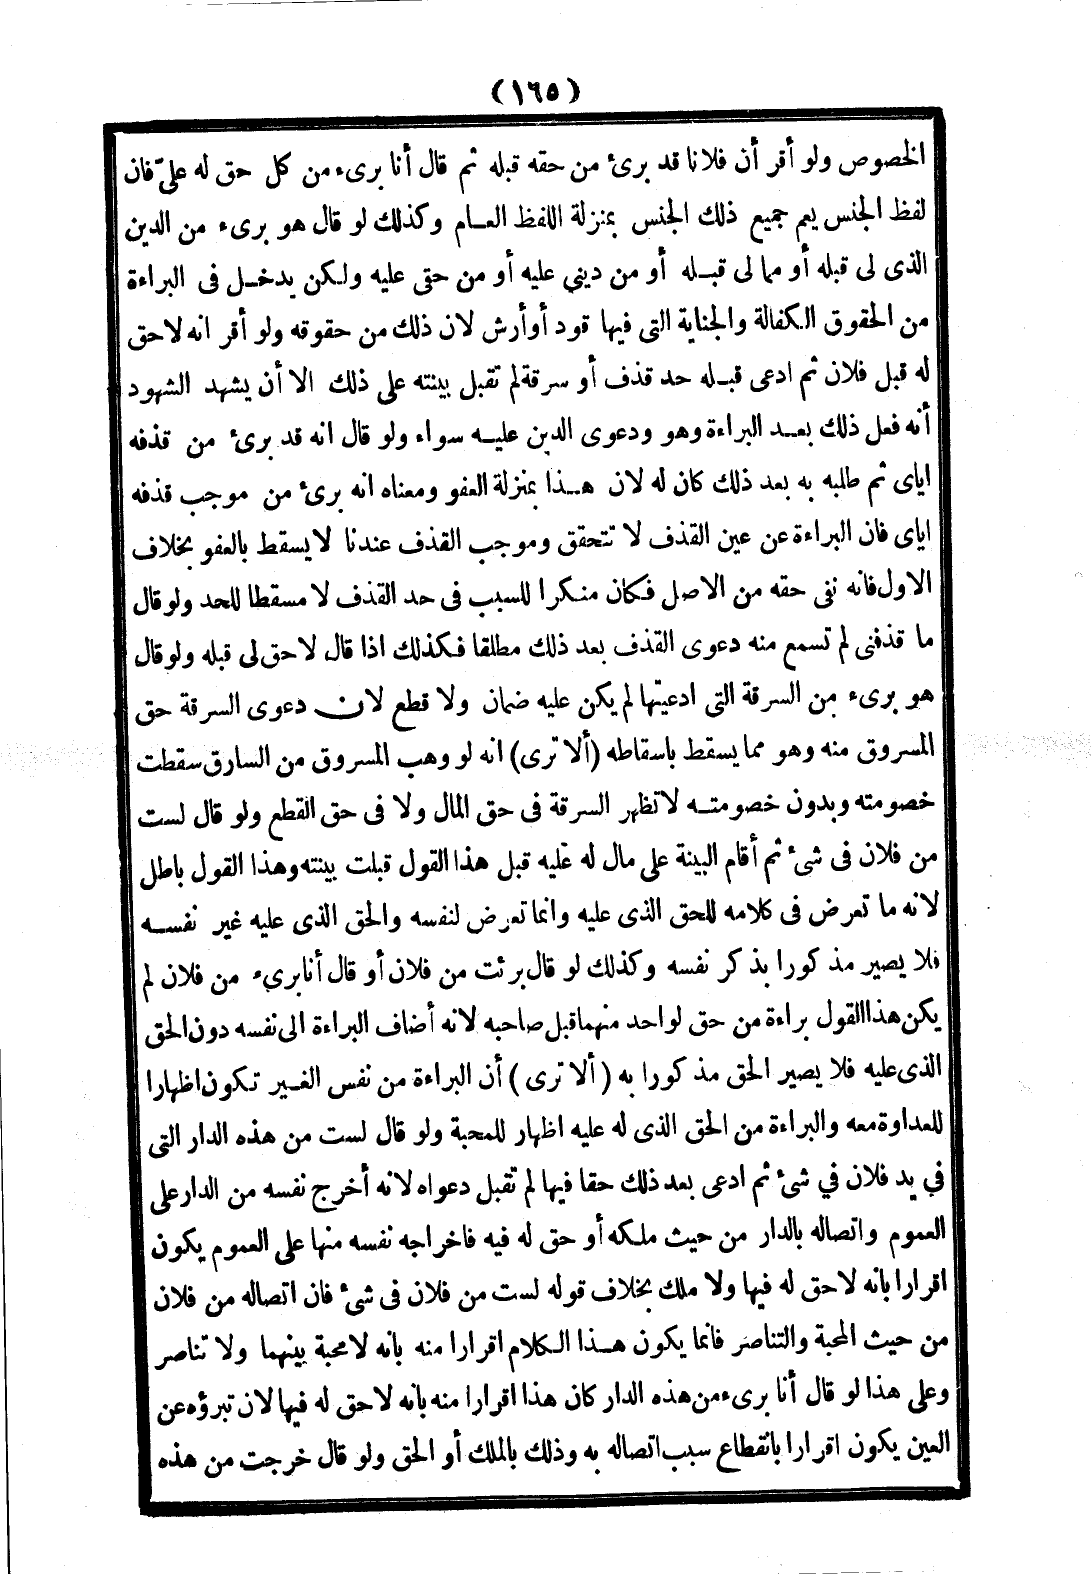 (١٦٥)
الخصوص ولو أقر أن فلانا قد برئ من حقه قبله ثم قال أنا برىء من كل حق له علىّ فان
لفظ الجنس يعم جميع ذلك الجنس بمنزلة اللفظ العام وكذلك لو قال هو برىء من الدين
الذى لى قبله أو مما لى قبله أو من ديني عليه أو من حقى عليه ولكن يدخل فى البراءة
من الحقوق الكفالة والجناية التى فيها قود أو أرش لان ذلك من حقوقه ولو أقر انه لا حق
له قبل فلان ثم ادعى قبله حد قذف أو سرقة لم تقبل بينته على ذلك الا أن يشهد الشهود
أنه فعل ذلك بعد البراءة وهو ودعوى الدين عليه سواء ولو قال انه قد برئ من قذفه
اياى ثم طلبه به بعد ذلك كان له لان هذا بمنزلة العفو ومعناه انه برئ من موجب قذفه
اياى فان البراءة عن عين القذف لا تتحقق وموجب القذف عندنا لا يسقط بالعفو بخلاف
الاول فانه نفى حقه من الاصل فكان منكرا للسبب فى حد القذف لا مسقطا للحد ولو قال
ما قذفنى لم تسمع منه دعوى القذف بعد ذلك مطلقا فكذلك اذا قال لا حق لى قبله ولو قال
هو برىء من السرقة التى ادعيتها لم يكن عليه ضمان ولا قطع لان دعوى السرقة حق
المسروق منه وهو مما يسقط باسقاطه (ألا ترى) انه لو وهب المسروق من السارق سقطت
خصومته وبدون خصومته لا تظهر السرقة فى حق المال ولا فى حق القطع ولو قال لست
من فلان فى شئ ثم أقام البينة على مال له عليه قبل هذا القول قبلت بينته وهذا القول باطل
لانه ما تعرض فى كلامه للحق الذى عليه وانما تعرض لنفسه والحق الذى عليه غير نفسه
فلا يصير مذكورا بذكر نفسه وكذلك لو قال برئت من فلان أو قال أنا برىء من فلان لم
يكن هذا القول براءة من حق لواحد منهما قبل صاحبه لانه أضاف البراءة الى نفسه دون الحق
الذى عليه فلا يصير الحق مذكورا به (ألا ترى) أن البراءة من نفس الغير تكون اظهارا
للعداوة معه والبراءة من الحق الذى له عليه اظهار للمحبة ولو قال لست من هذه الدار التى
في يد فلان في شئ ثم ادعى بعد ذلك حقا فيها لم تقبل دعواه لانه أخرج نفسه من الدار على
العموم واتصاله بالدار من حيث ملكه أو حق له فيه فاخراجه نفسه منها على العموم يكون
اقرارا بانه لا حق له فيها ولا ملك بخلاف قوله لست من فلان فى شئ فان اتصاله من فلان
من حيث المحبة والتناصر فانما يكون هذا الكلام اقرارا منه بانه لا محبة بينهما ولا تناصر
وعلى هذا لو قال أنا برىء من هذه الدار كان هذا اقرارا منه بانه لا حق له فيها لان تبرؤه عن
العين يكون اقرارا بانقطاع سبب اتصاله به وذلك بالملك أو الحق ولو قال خرجت من هذه